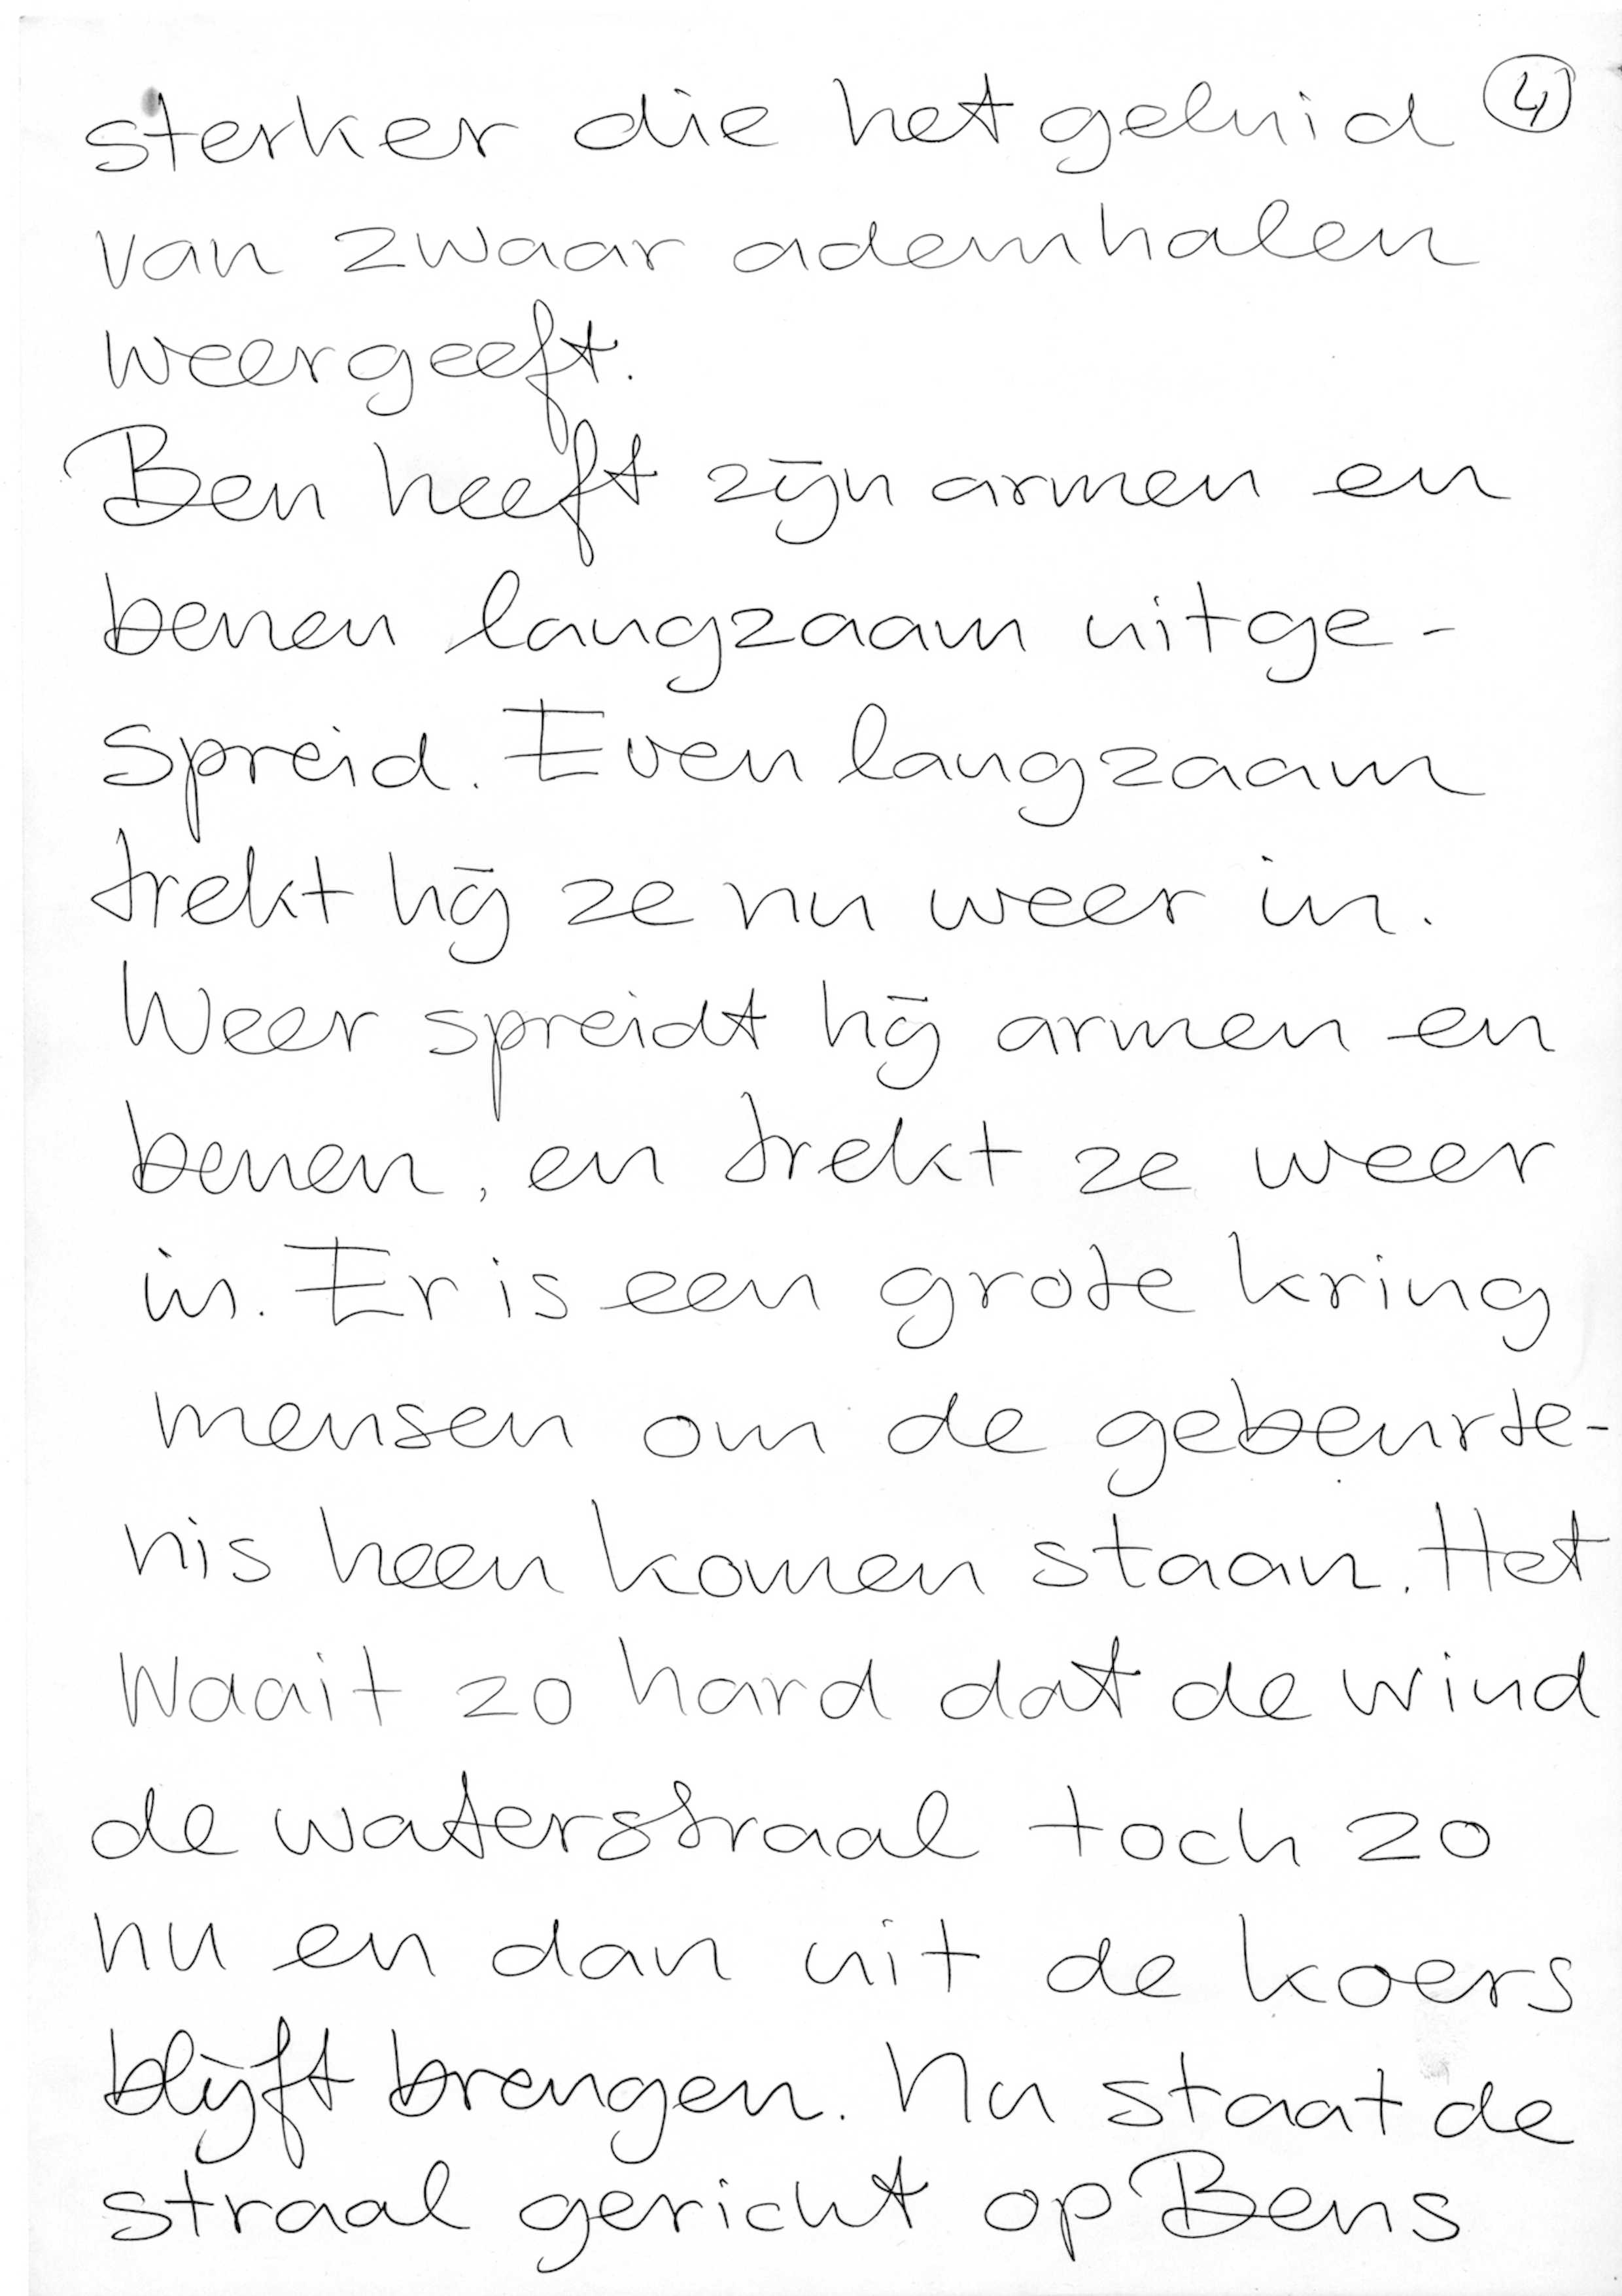 sterker die het geluid ④
van zwaar ademhalen
weergeeft.
Ben heeft zijn armen en
benen langzaam uitge-
spreid. Even langzaam
trekt hij ze nu weer in.
Weer spreidt hij armen en
benen, en trekt ze weer
in. Er is een grote kring
mensen om de gebeurte-
nis heen komen staan. Het
waait zo hard dat de wind
de waterstraal toch zo
nu en dan uit de koers
blijft brengen. Nu staat de
straal gericht op Bens